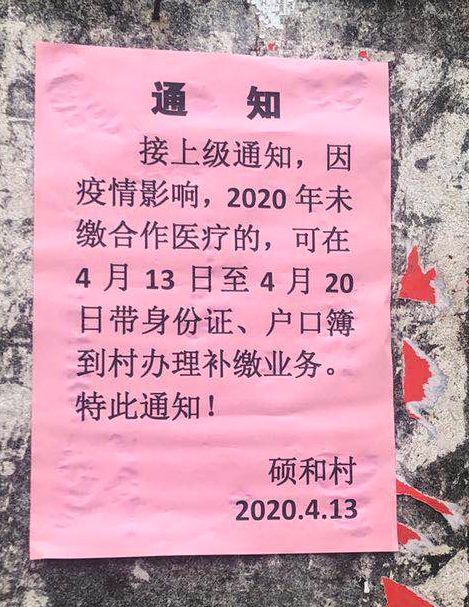 通 知
接上级通知，因
疫情影响，2020年未
缴合作医疗的，可在
4月13日至4月20
日带身份证、户口簿
到村办理补缴业务。
特此通知！
硕和村
2020.4.13